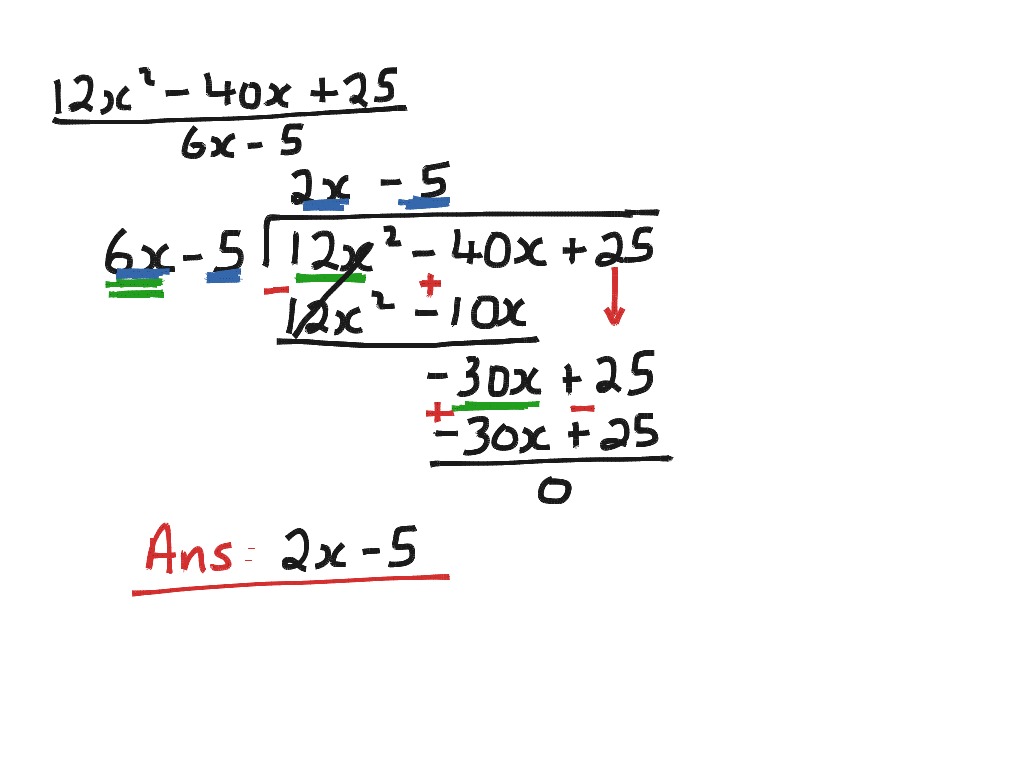 12x² - 40x + 25
6x - 5
2x - 5
6x - 5 12x² - 40x + 25
- +
12x² - 10x
- 30x + 25
+ -
- 30x + 25
0
Ans: 2x - 5